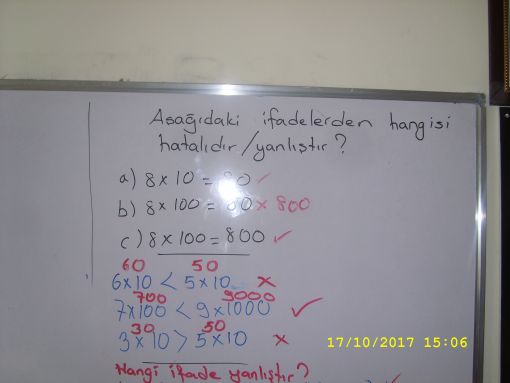 Aşağıdaki ifadelerden hangisi
hatalıdır/yanlıştır?
a) 8x10=80 ✓
b) 8x100=80 x 800
c) 8x100=800 ✓
60 50
6x10 < 5x10 x
700 9000
7x100 < 9x1000 ✓
30 50
3x10 > 5x10 x
Hangi ifade yanlıştır?
17/10/2017 15:06